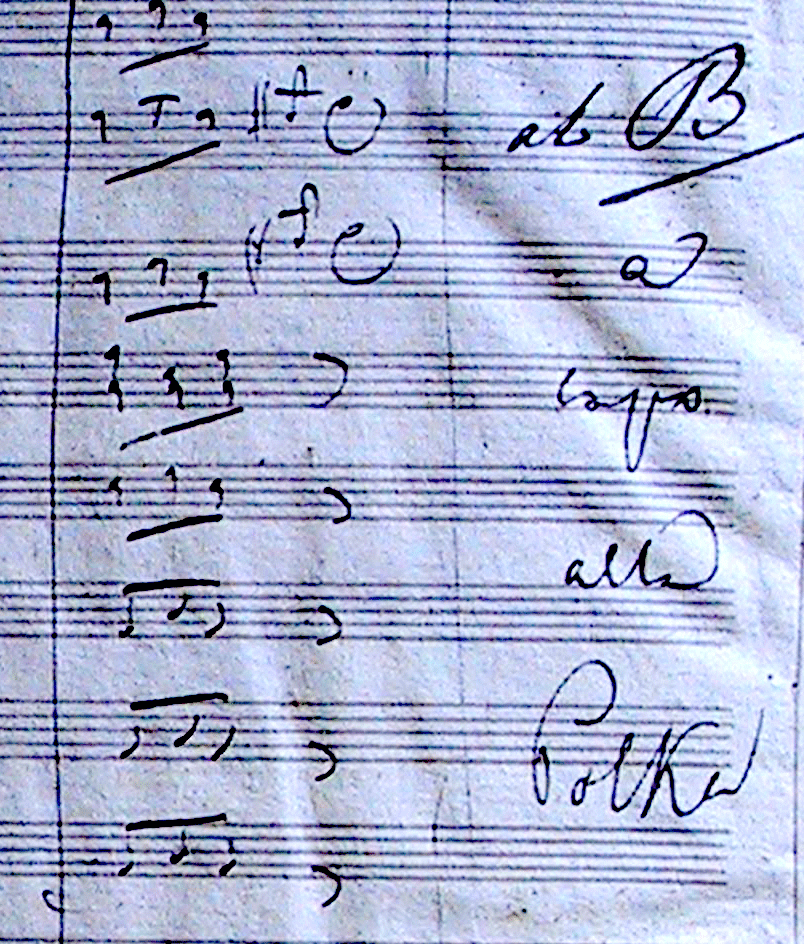 al B
a
capo
alla
Polka